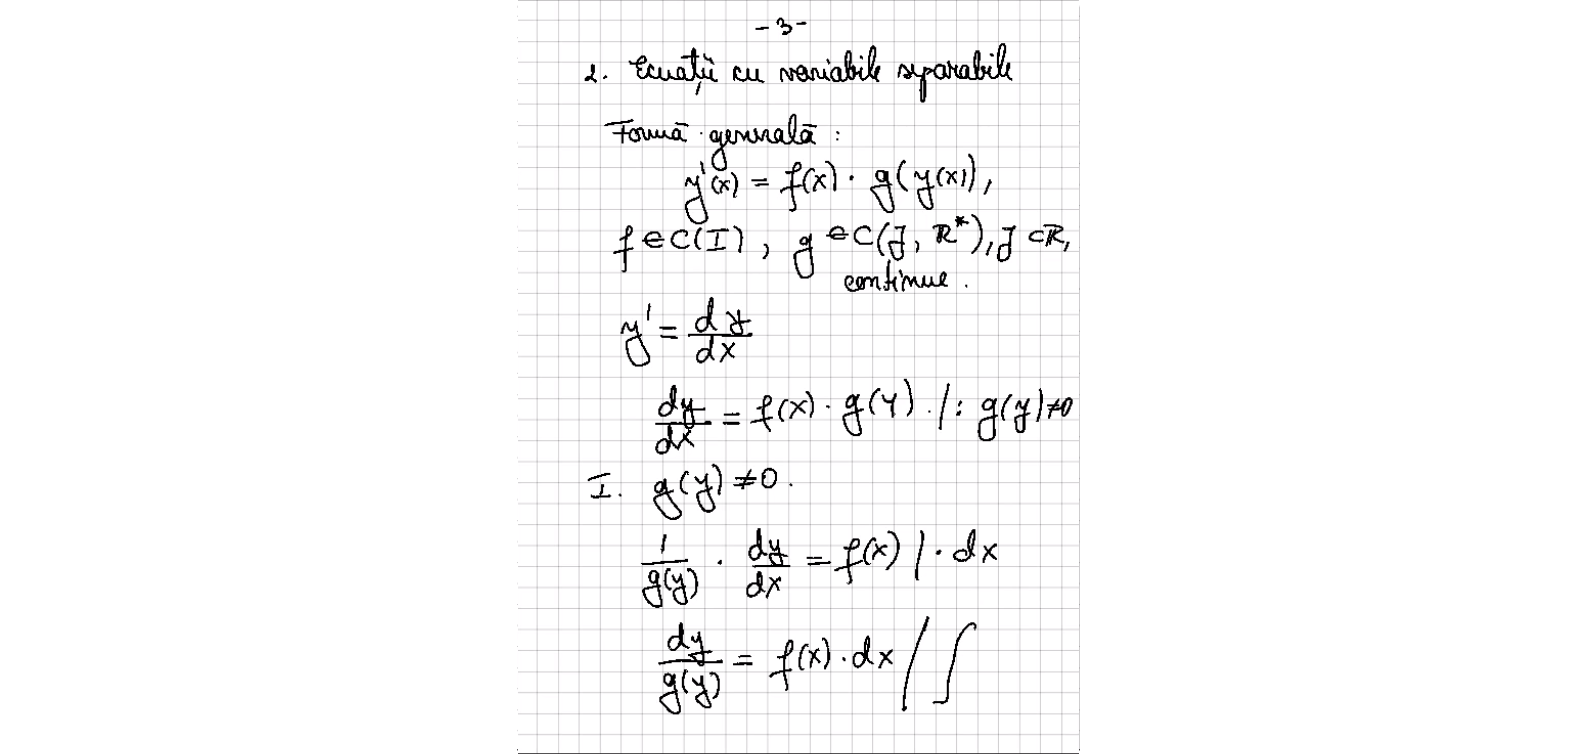 -3-
2. Ecuații cu variabile separabile
Formă generală :
y'(x) = f(x) · g(y(x)),
f ∈ C(I), g ∈ C(J, ℝ*), J ⊂ ℝ,
continue.
y' = dy/dx
dy/dx = f(x) · g(y) . /: g(y) ≠ 0
I. g(y) ≠ 0.
1/g(y) · dy/dx = f(x) | · dx
dy/g(y) = f(x) · dx / ∫